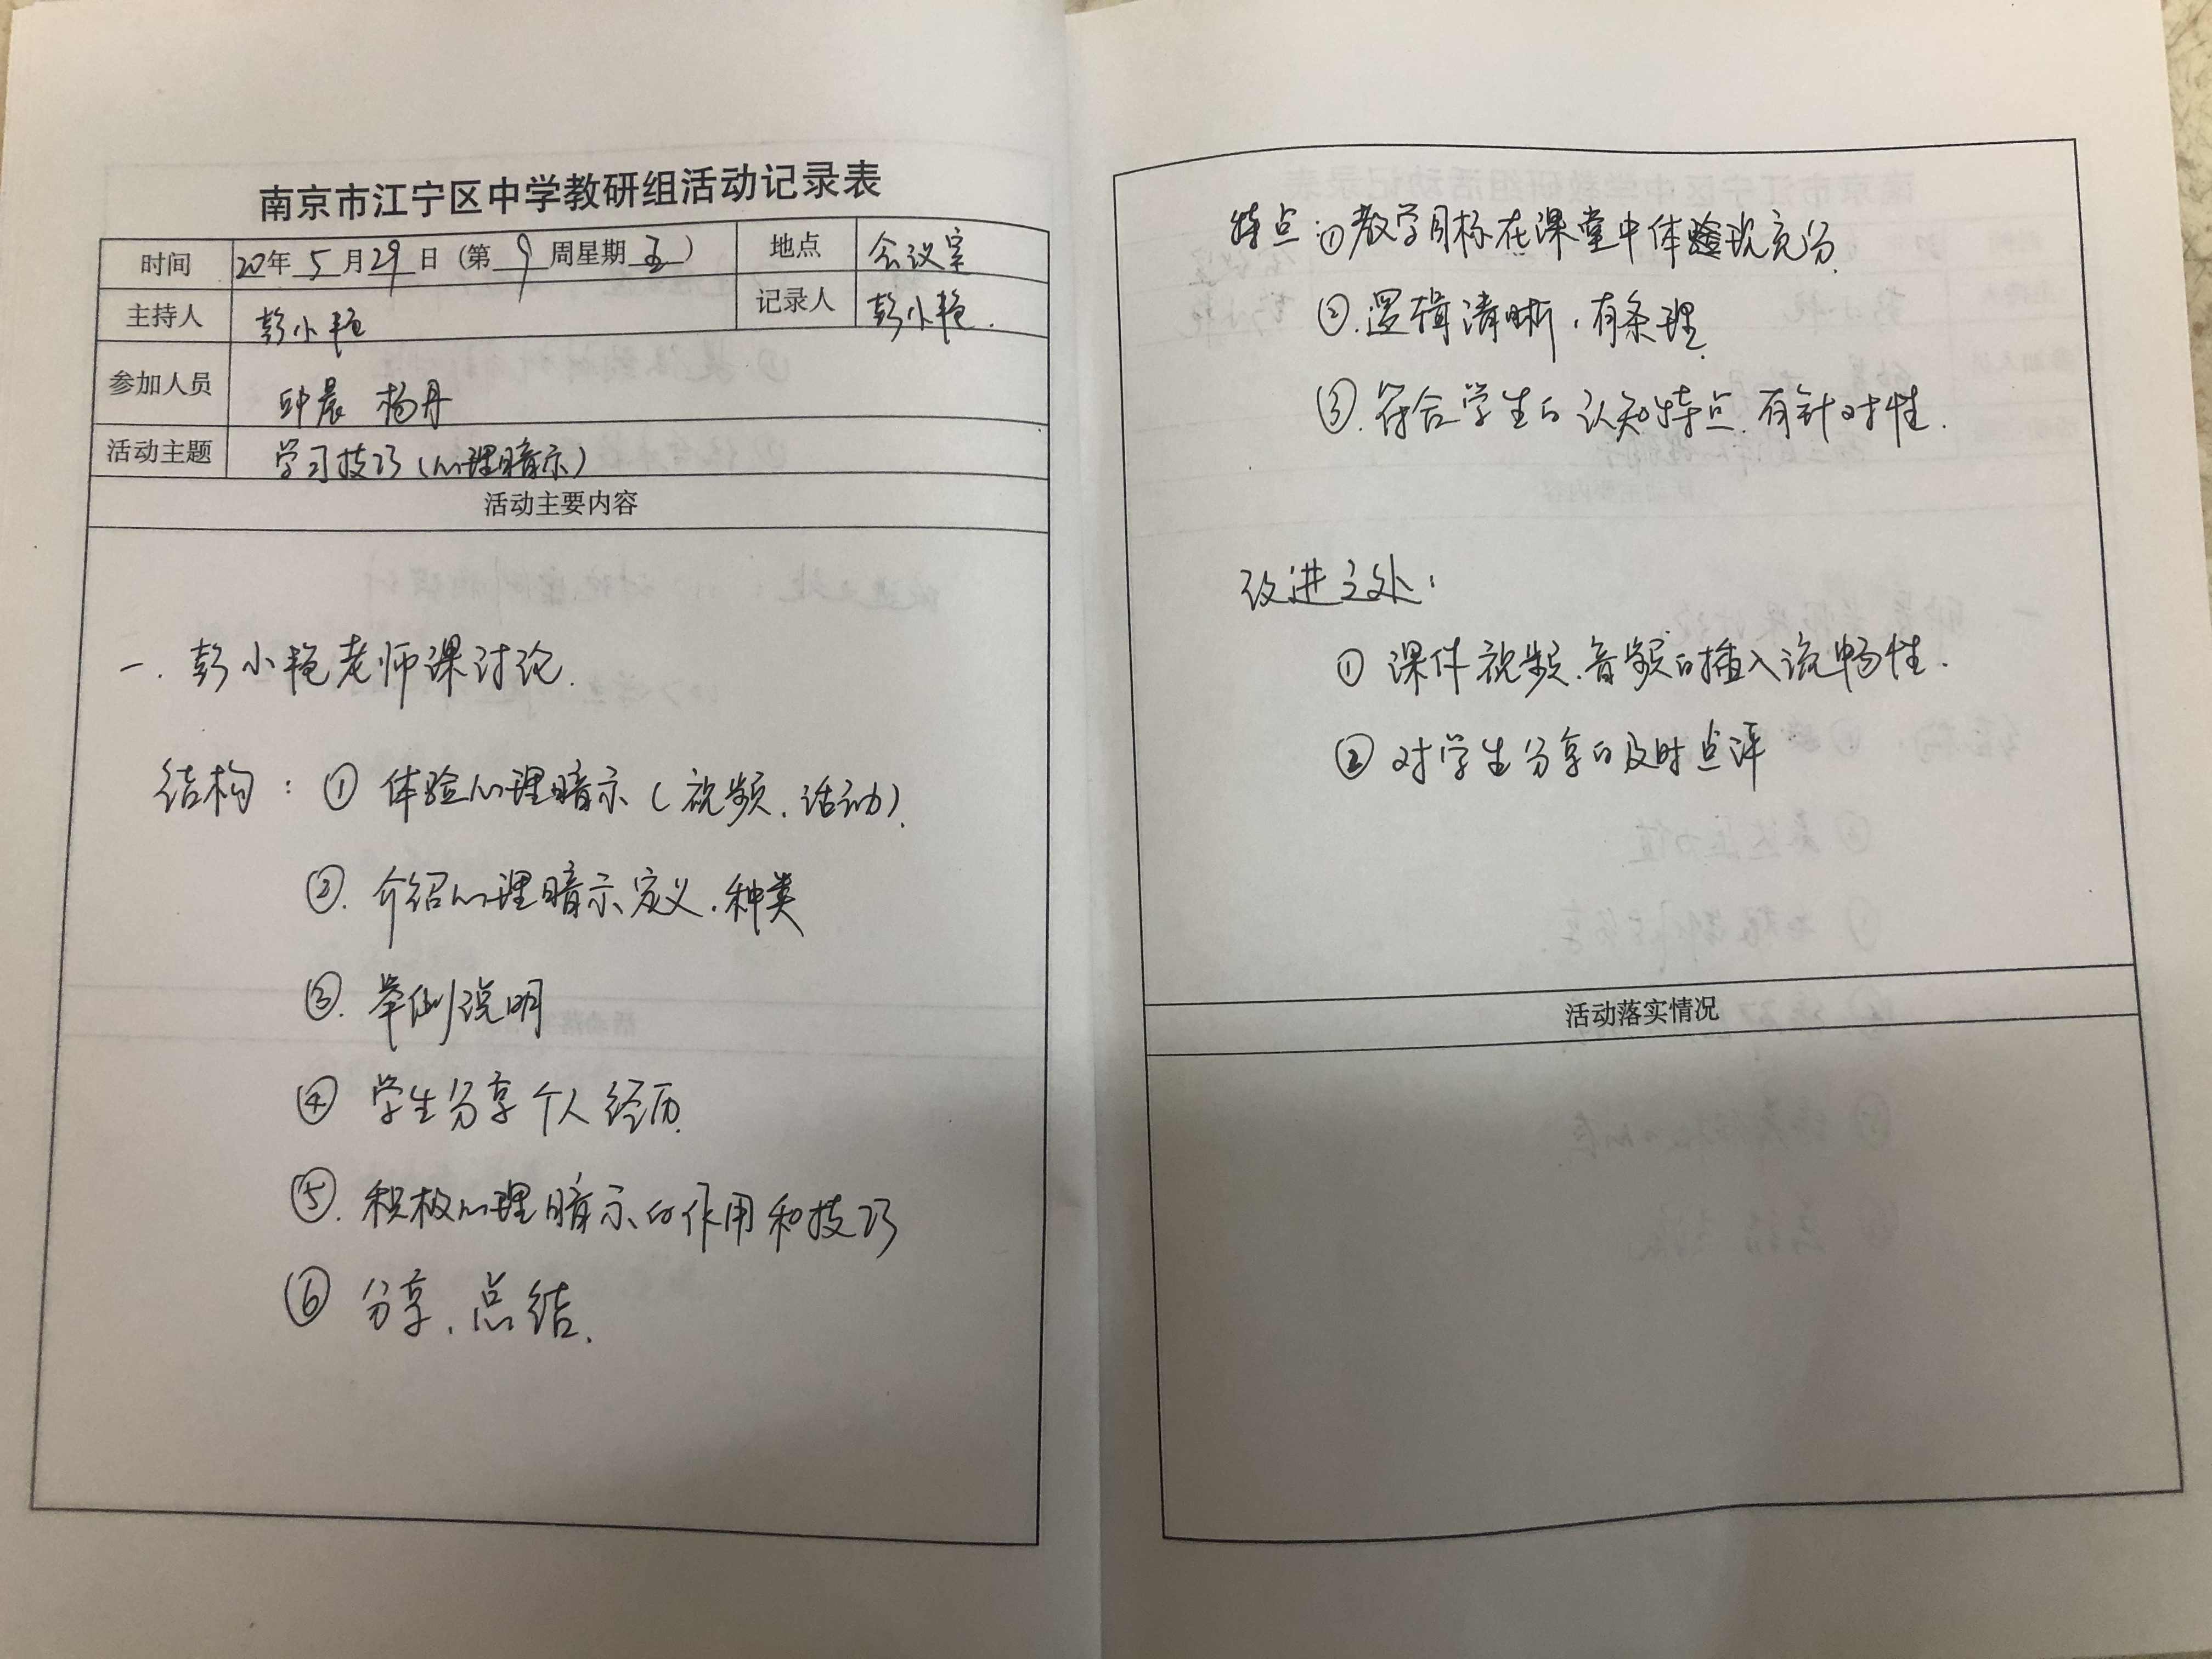 南京市江宁区中学教研组活动记录表
时间 20年 5 月 29 日 (第 9 周星期 五 ) 地点 会议室
主持人 彭小艳 记录人 彭小艳.
参加人员 邱晨 杨丹
活动主题 学习技巧(心理暗示)
活动主要内容
一. 彭小艳老师课讨论.
结构: ① 体验心理暗示(视频、活动).
②. 介绍心理暗示定义、种类
③. 举例说明
④ 学生分享个人经历.
⑤. 积极心理暗示的作用和技巧
⑥ 分享、总结.
特点: ①教学目标在课堂中体现充分.
②. 逻辑清晰, 有条理.
③. 符合学生的认知特点. 有针对性.
改进之处:
① 课件视频、音频的插入流畅性.
② 对学生分享的及时点评
活动落实情况